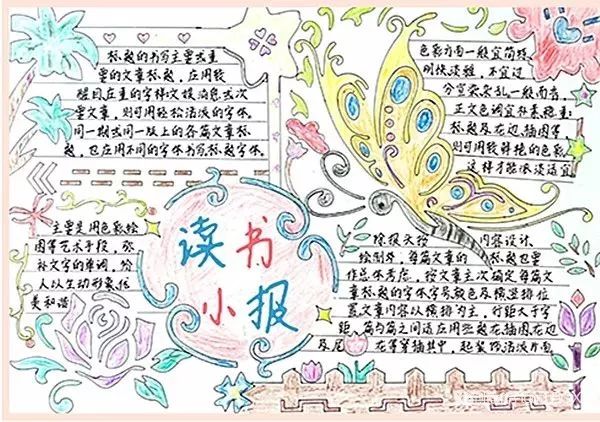 标题的书写主要或重
要的文章标题，应用较
醒目庄重的字样文娱消息或次
要文章，则可用轻松活泼的字体。
同一期或同一版上的各篇文章标
题，也应用不同的字体书写标题字体。
色彩方面一般宜简短、
明快淡雅，不宜过
分宣杂杂乱一般而言，
正文色调宜朴素稳重
标题及花边、插图等，
则可用较鲜艳的色彩
这样才能浓淡适宜
读书
小报
主要是用色彩绘
图等艺术手段，弥
补文字的单调，给
人以生动形象优
美和谐
绘报头按 内容设计，
绘制外，每篇文章的 标题也要
作总体考虑，按文章主次确定每篇文
章标题的字体字号颜色及横竖排位
置文章内容以横排为主，行距大于字
距，篇与篇之间适应用题花插图花边
及尾 花等穿插其中，起装饰活泼方面